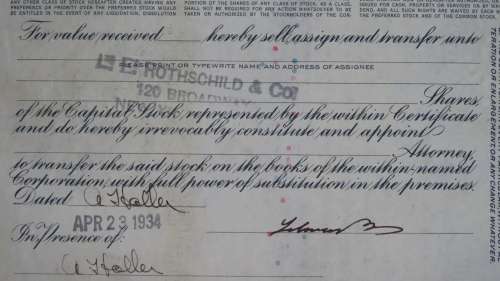 ANY OTHER CLASS OF STOCK HEREAFTER CREATED HAVING ANY
PREFERENCE OR PRIORITY OVER THE PREFERRED STOCK WOULD
BE ENTITLED IN THE EVENT OF ANY LIQUIDATION, DISSOLUTION
PORTION OF THE SHARES OF ANY CLASS OF STOCK, AS A CLASS,
SHALL NOT BE REQUIRED FOR ANY ACTION WHATSOEVER TO BE
TAKEN OR AUTHORIZED BY THE STOCKHOLDERS OF THE COR-
ISSUED FOR CASH, PROPERTY OR SERVICES OR BY
DEND, AND ALL SUCH RIGHTS ARE WAIVED BY
THE PREFERRED STOCK AND OF THE COMMON STOCK.
For value received hereby sell, assign and transfer unto
PLEASE PRINT OR TYPEWRITE NAME AND ADDRESS OF ASSIGNEE
L. F. ROTHSCHILD & CO.
120 BROADWAY
Shares
of the Capital Stock represented by the within Certificate
and do hereby irrevocably constitute and appoint
Attorney,
to transfer the said stock on the books of the within-named
Corporation, with full power of substitution in the premises.
Dated A Haller
APR 23 1934
In Presence of:
A Haller
ALTERATION OR ENLARGEMENT OR ANY CHANGE WHATEVER.